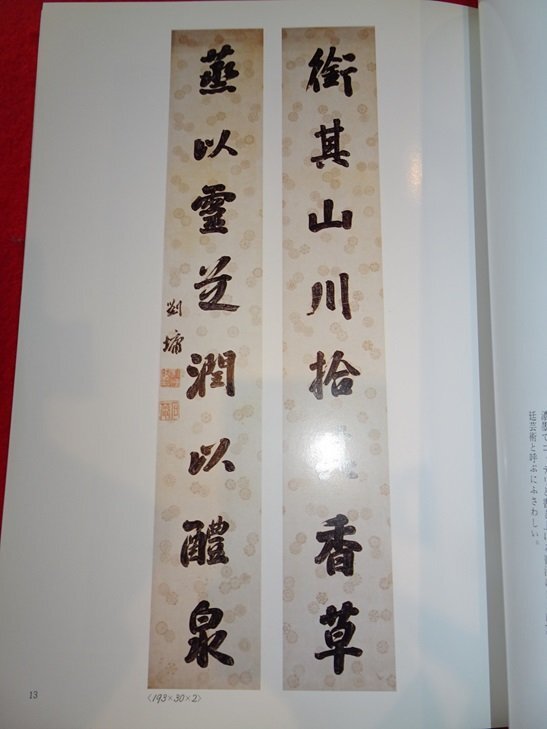 銜其山川拾香草
蒸以靈芝潤以醴泉
劉墉
13
〈193×30×2〉
廷芸術と呼ぶにふさわしい。